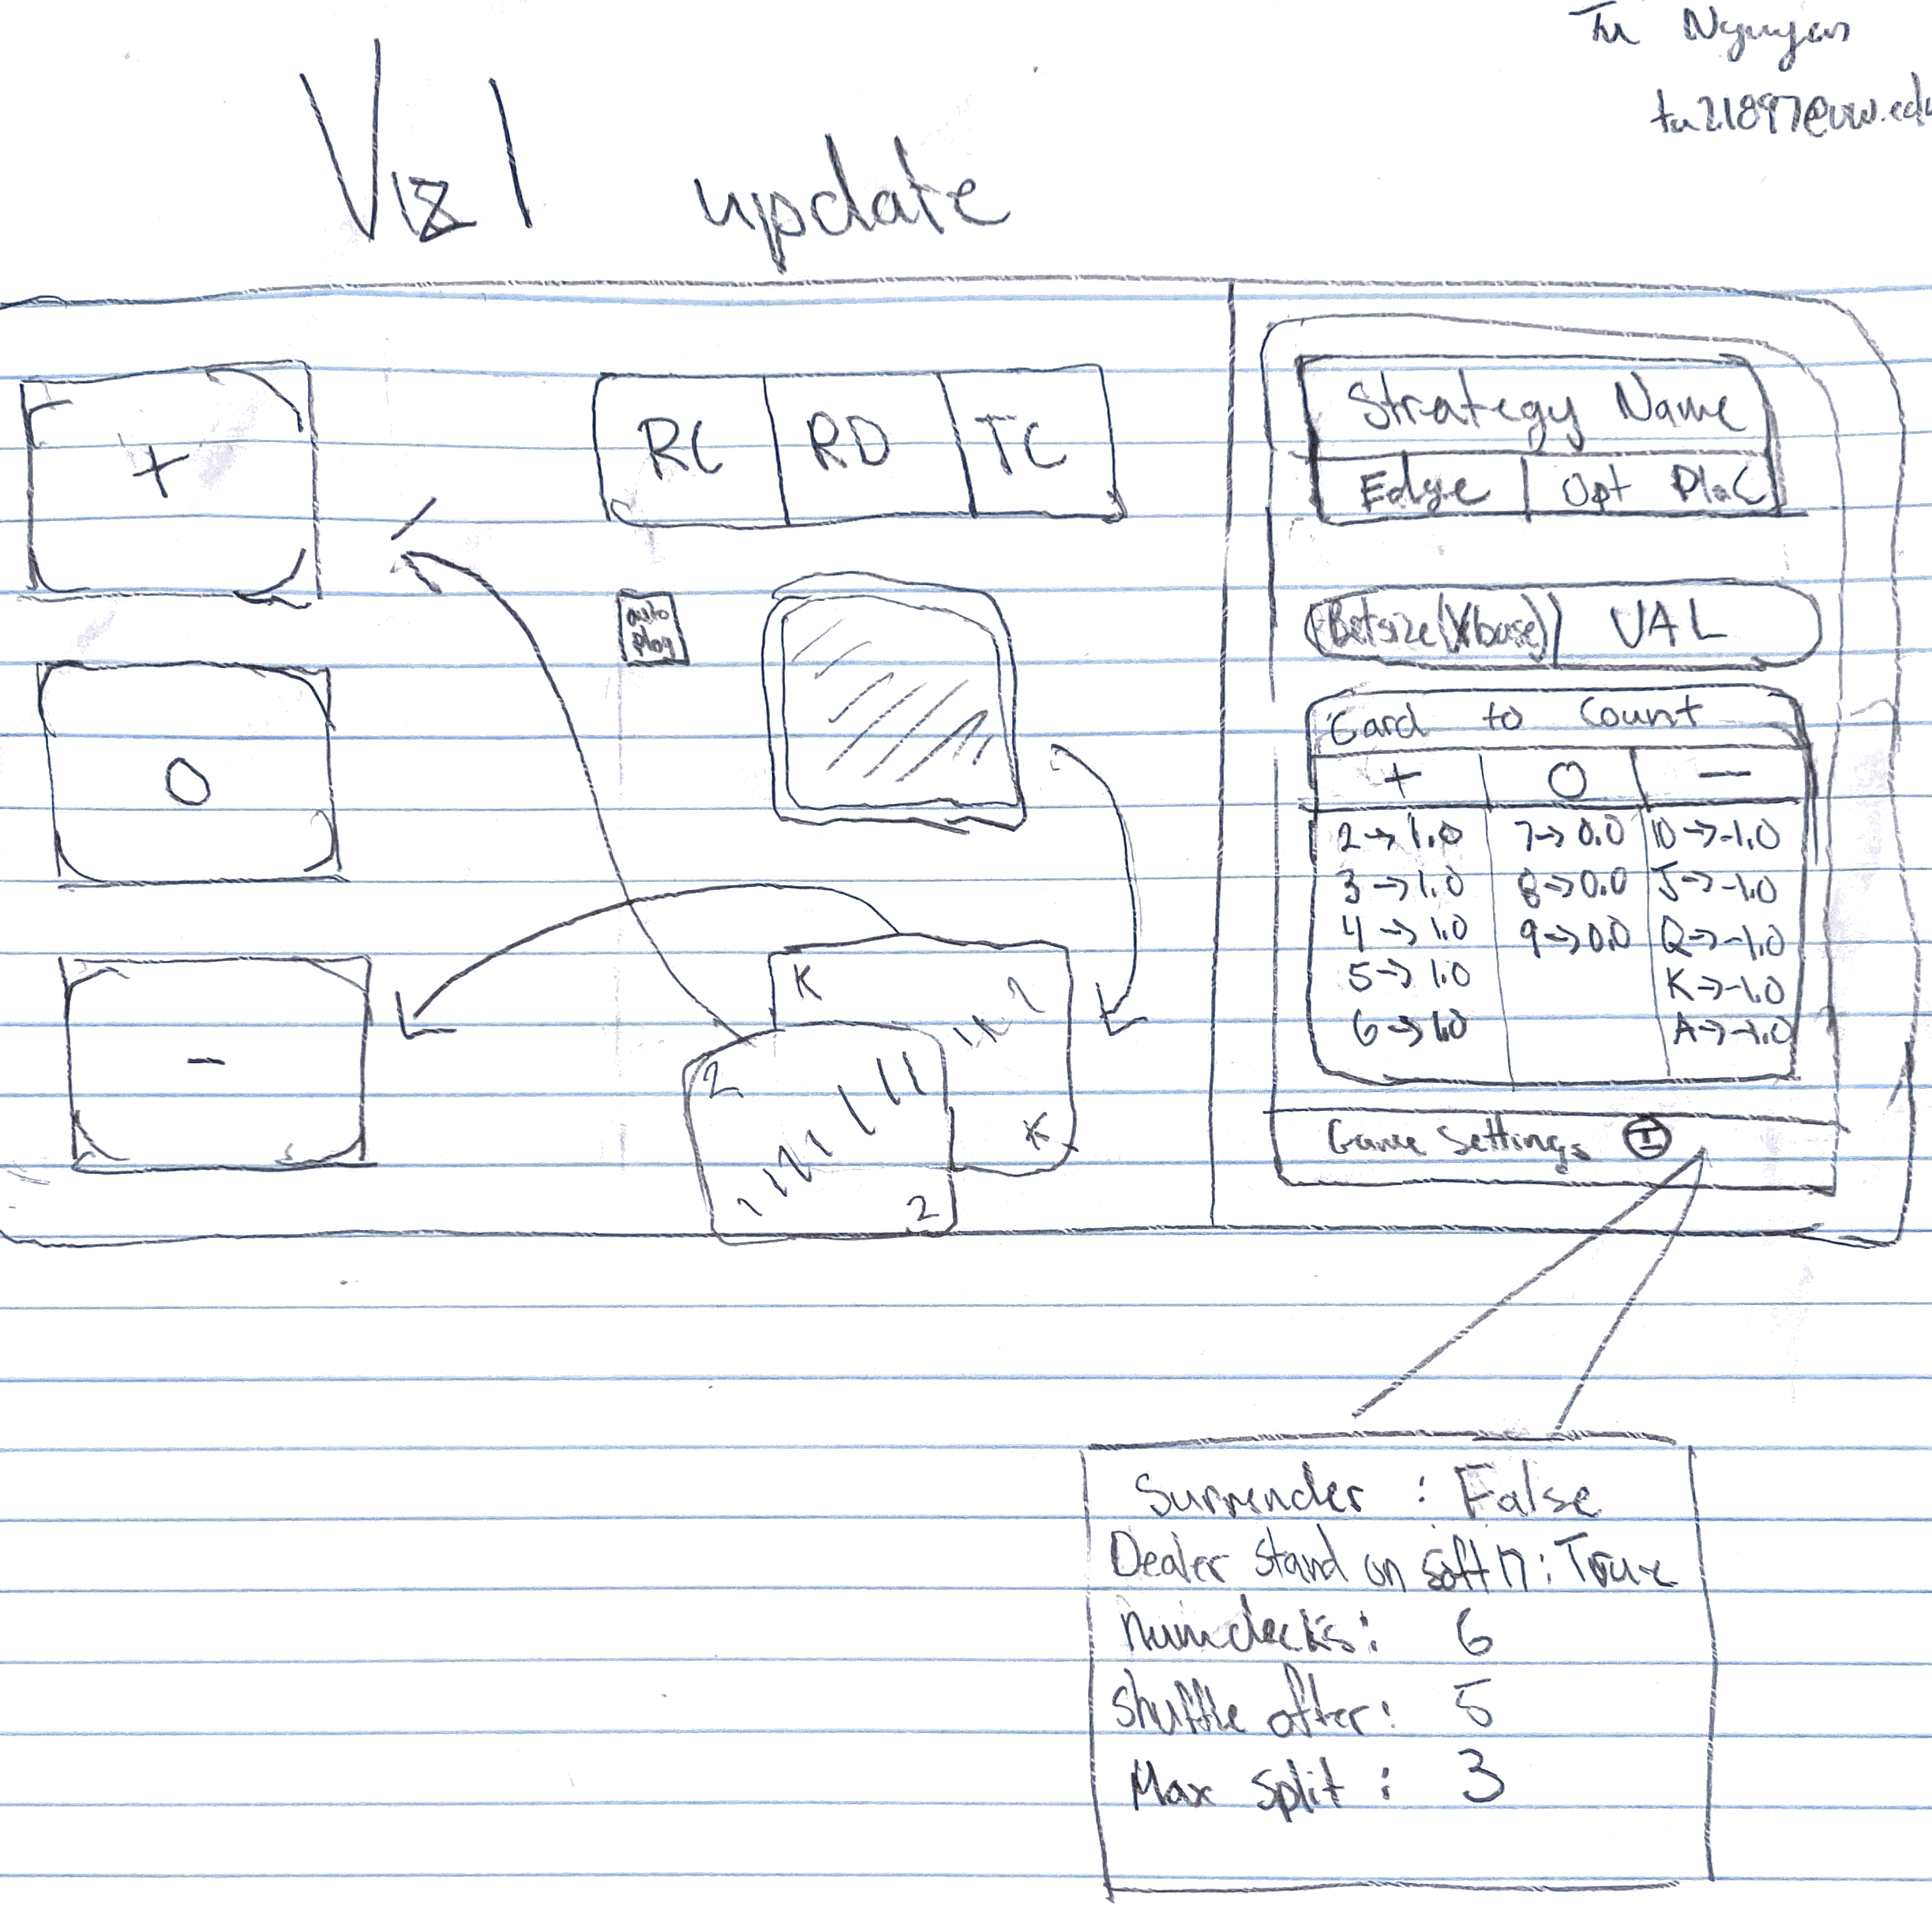 Tu Nguyen
tu21897@uw.edu
Viz 1 update
+
RC RD TC
Strategy Name
Edge Opt Plac
auto
play
Betsize(Xbase) VAL
0
Card to Count
+ 0 -
2->1.0 7->0.0 10->-1.0
3->1.0 8->0.0 J->-1.0
4->1.0 9->0.0 Q->-1.0
5->1.0 K->-1.0
6->1.0 A->-1.0
-
K
K
2
2
Game Settings I
Surrender : False
Dealer Stand on soft 17: True
Numdecks: 6
Shuffle after: 5
Max split : 3